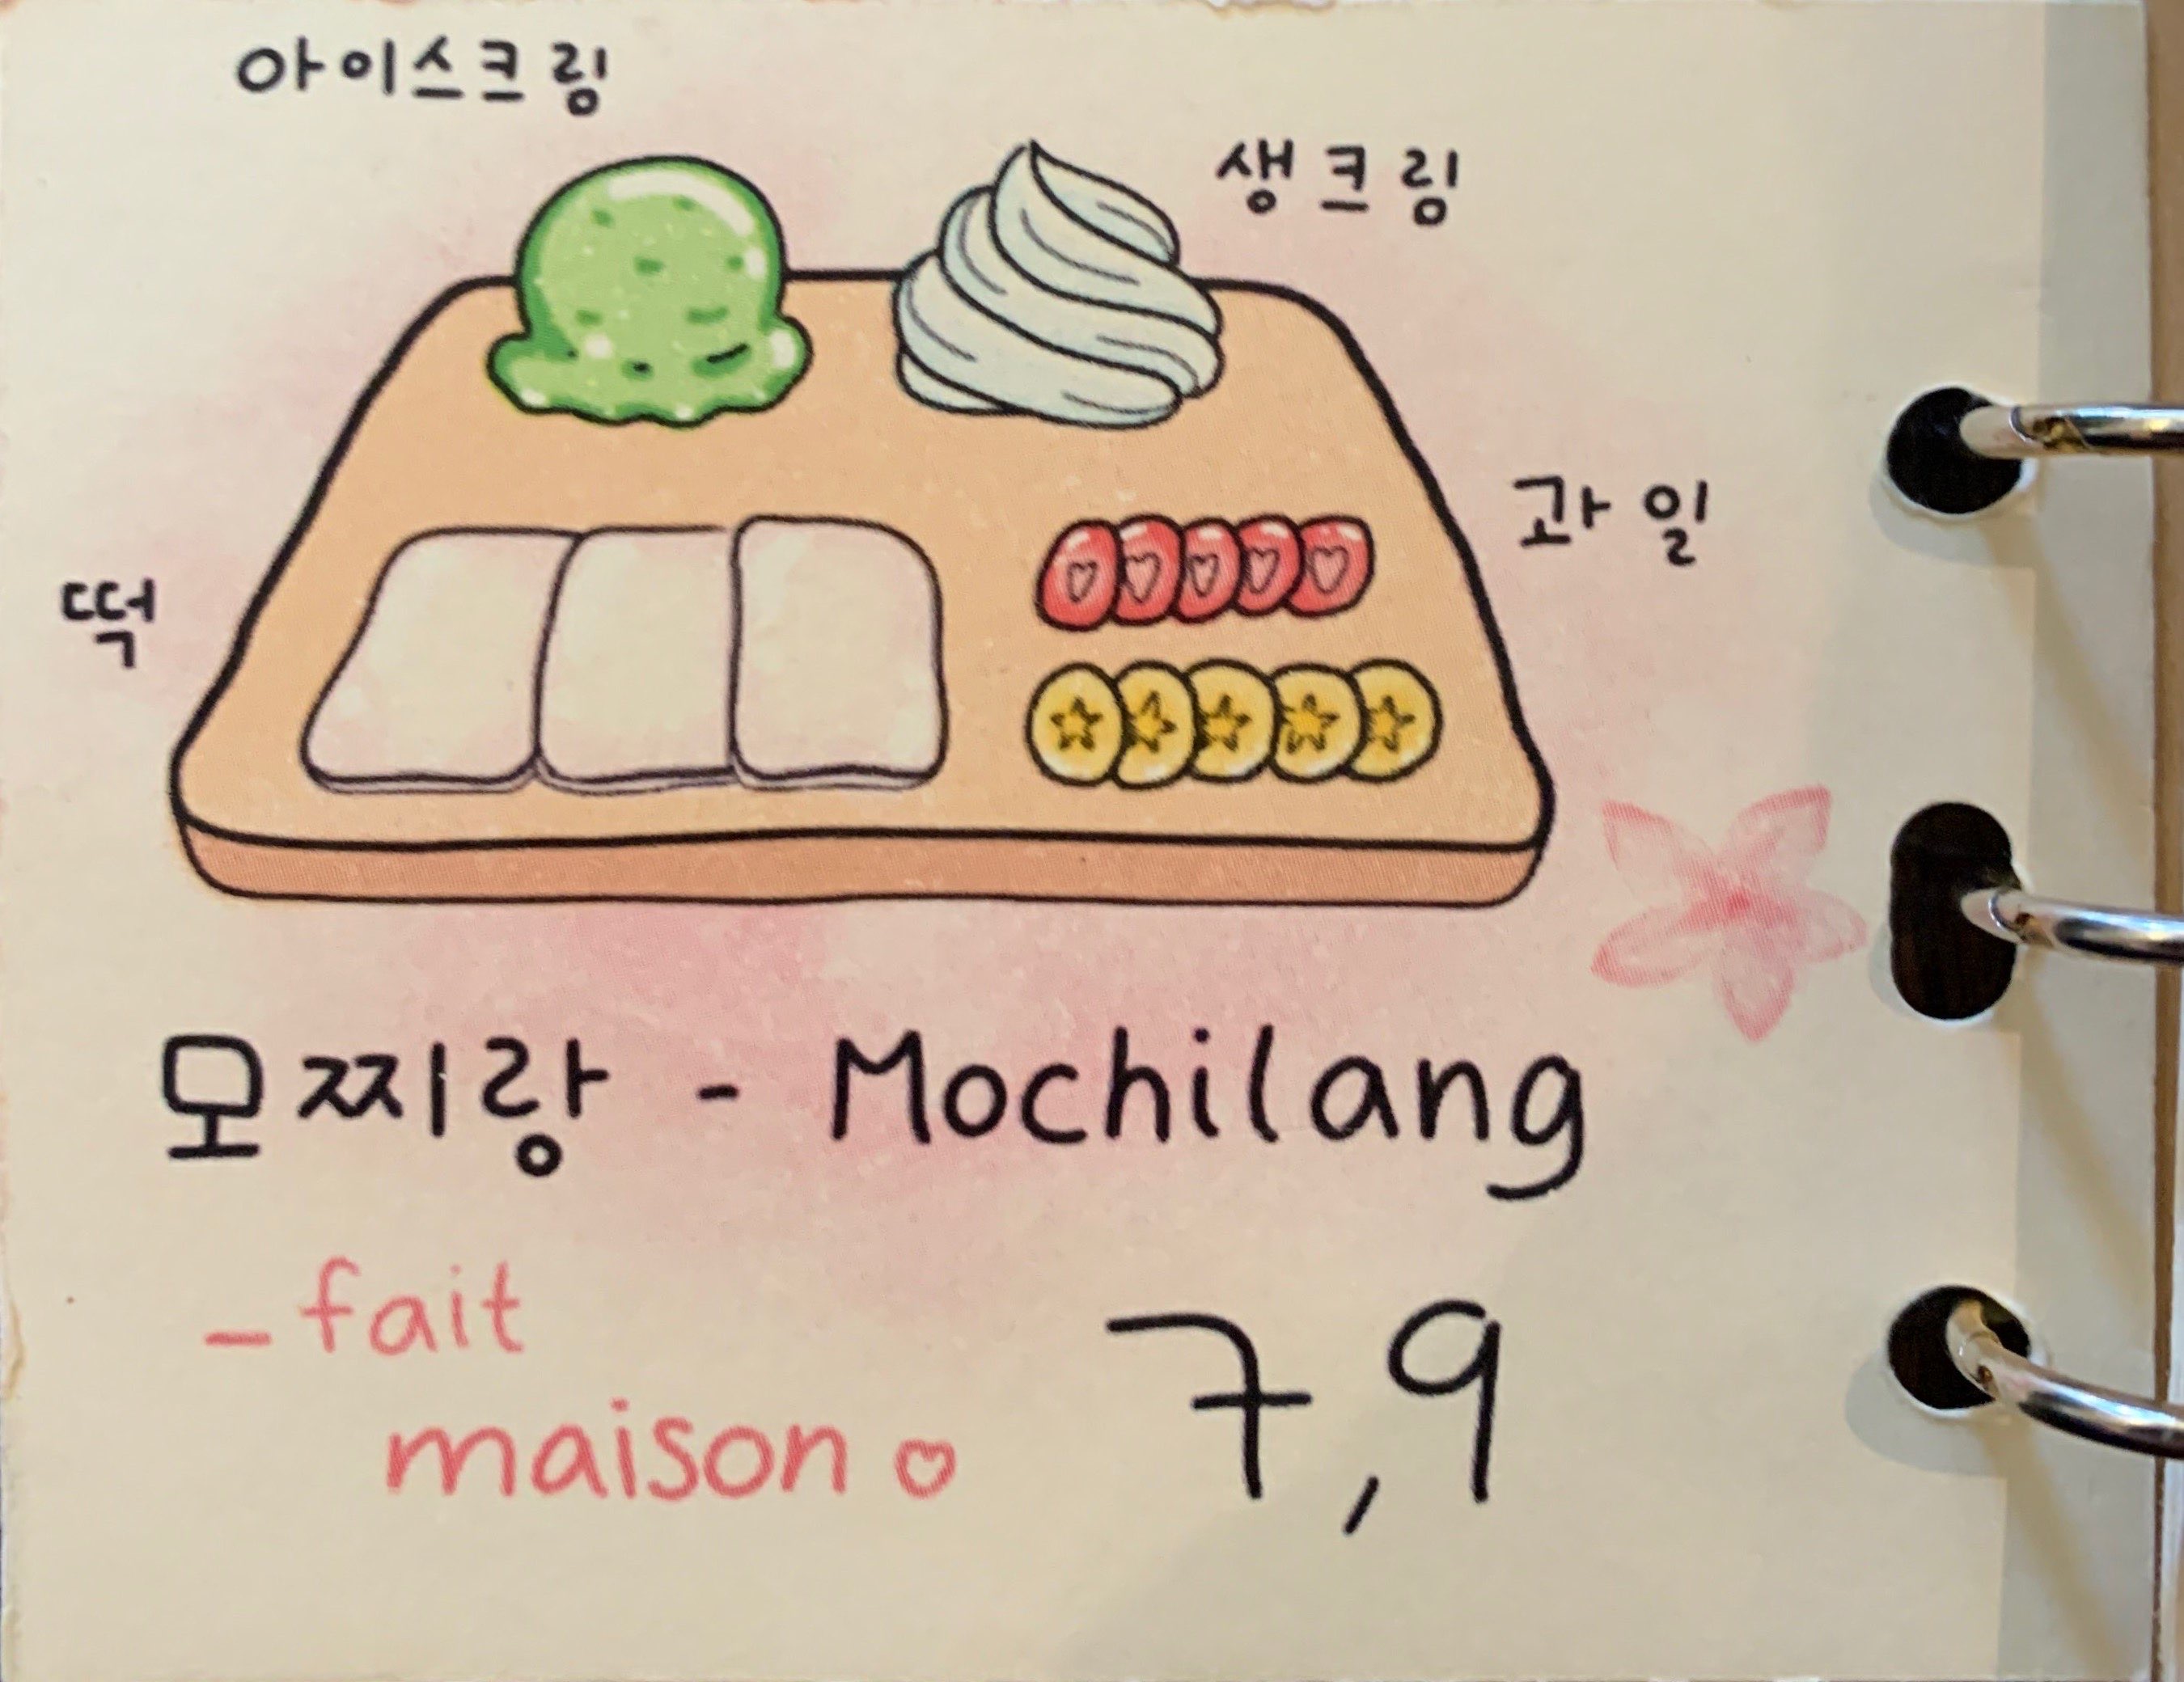 아이스크림
생크림
과일
떡
모찌랑 - Mochilang
- fait
maison
7,9